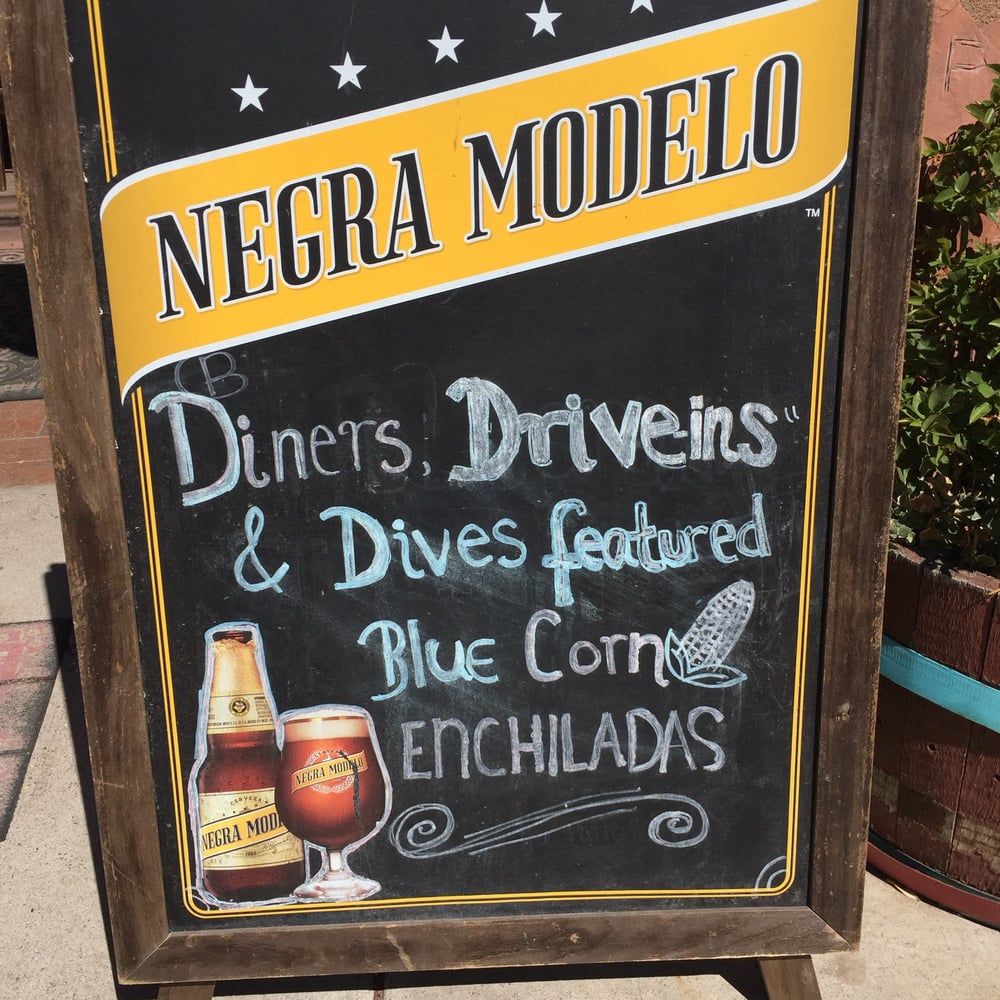 NEGRA MODELO
TM
Diners, Drive-ins"
& Dives featured
Blue Corn
ENCHILADAS
NEGRA MODELO
CERVEZA
NEGRA MOD